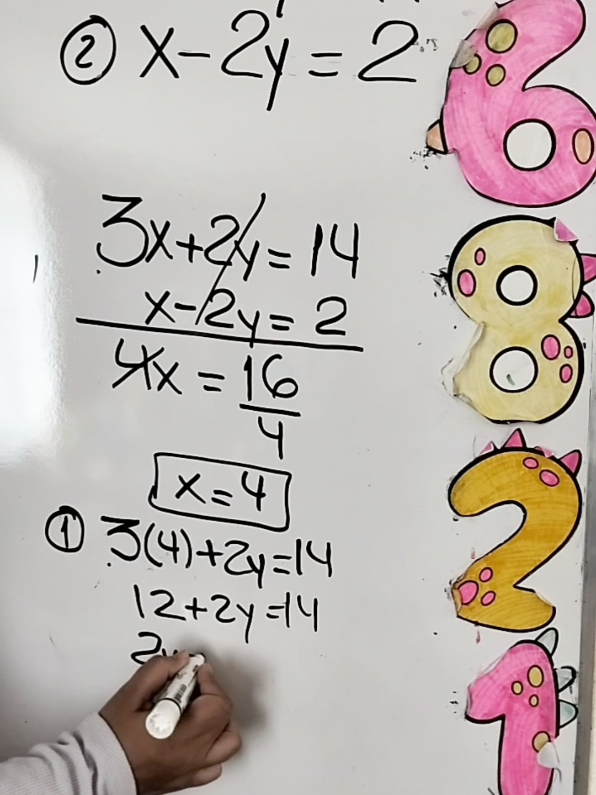 ② x-2y=2
3x+2y=14
x-2y=2
4x=16
4
x=4
① 3(4)+2y=14
12+2y=14
2y
6
8
2
1